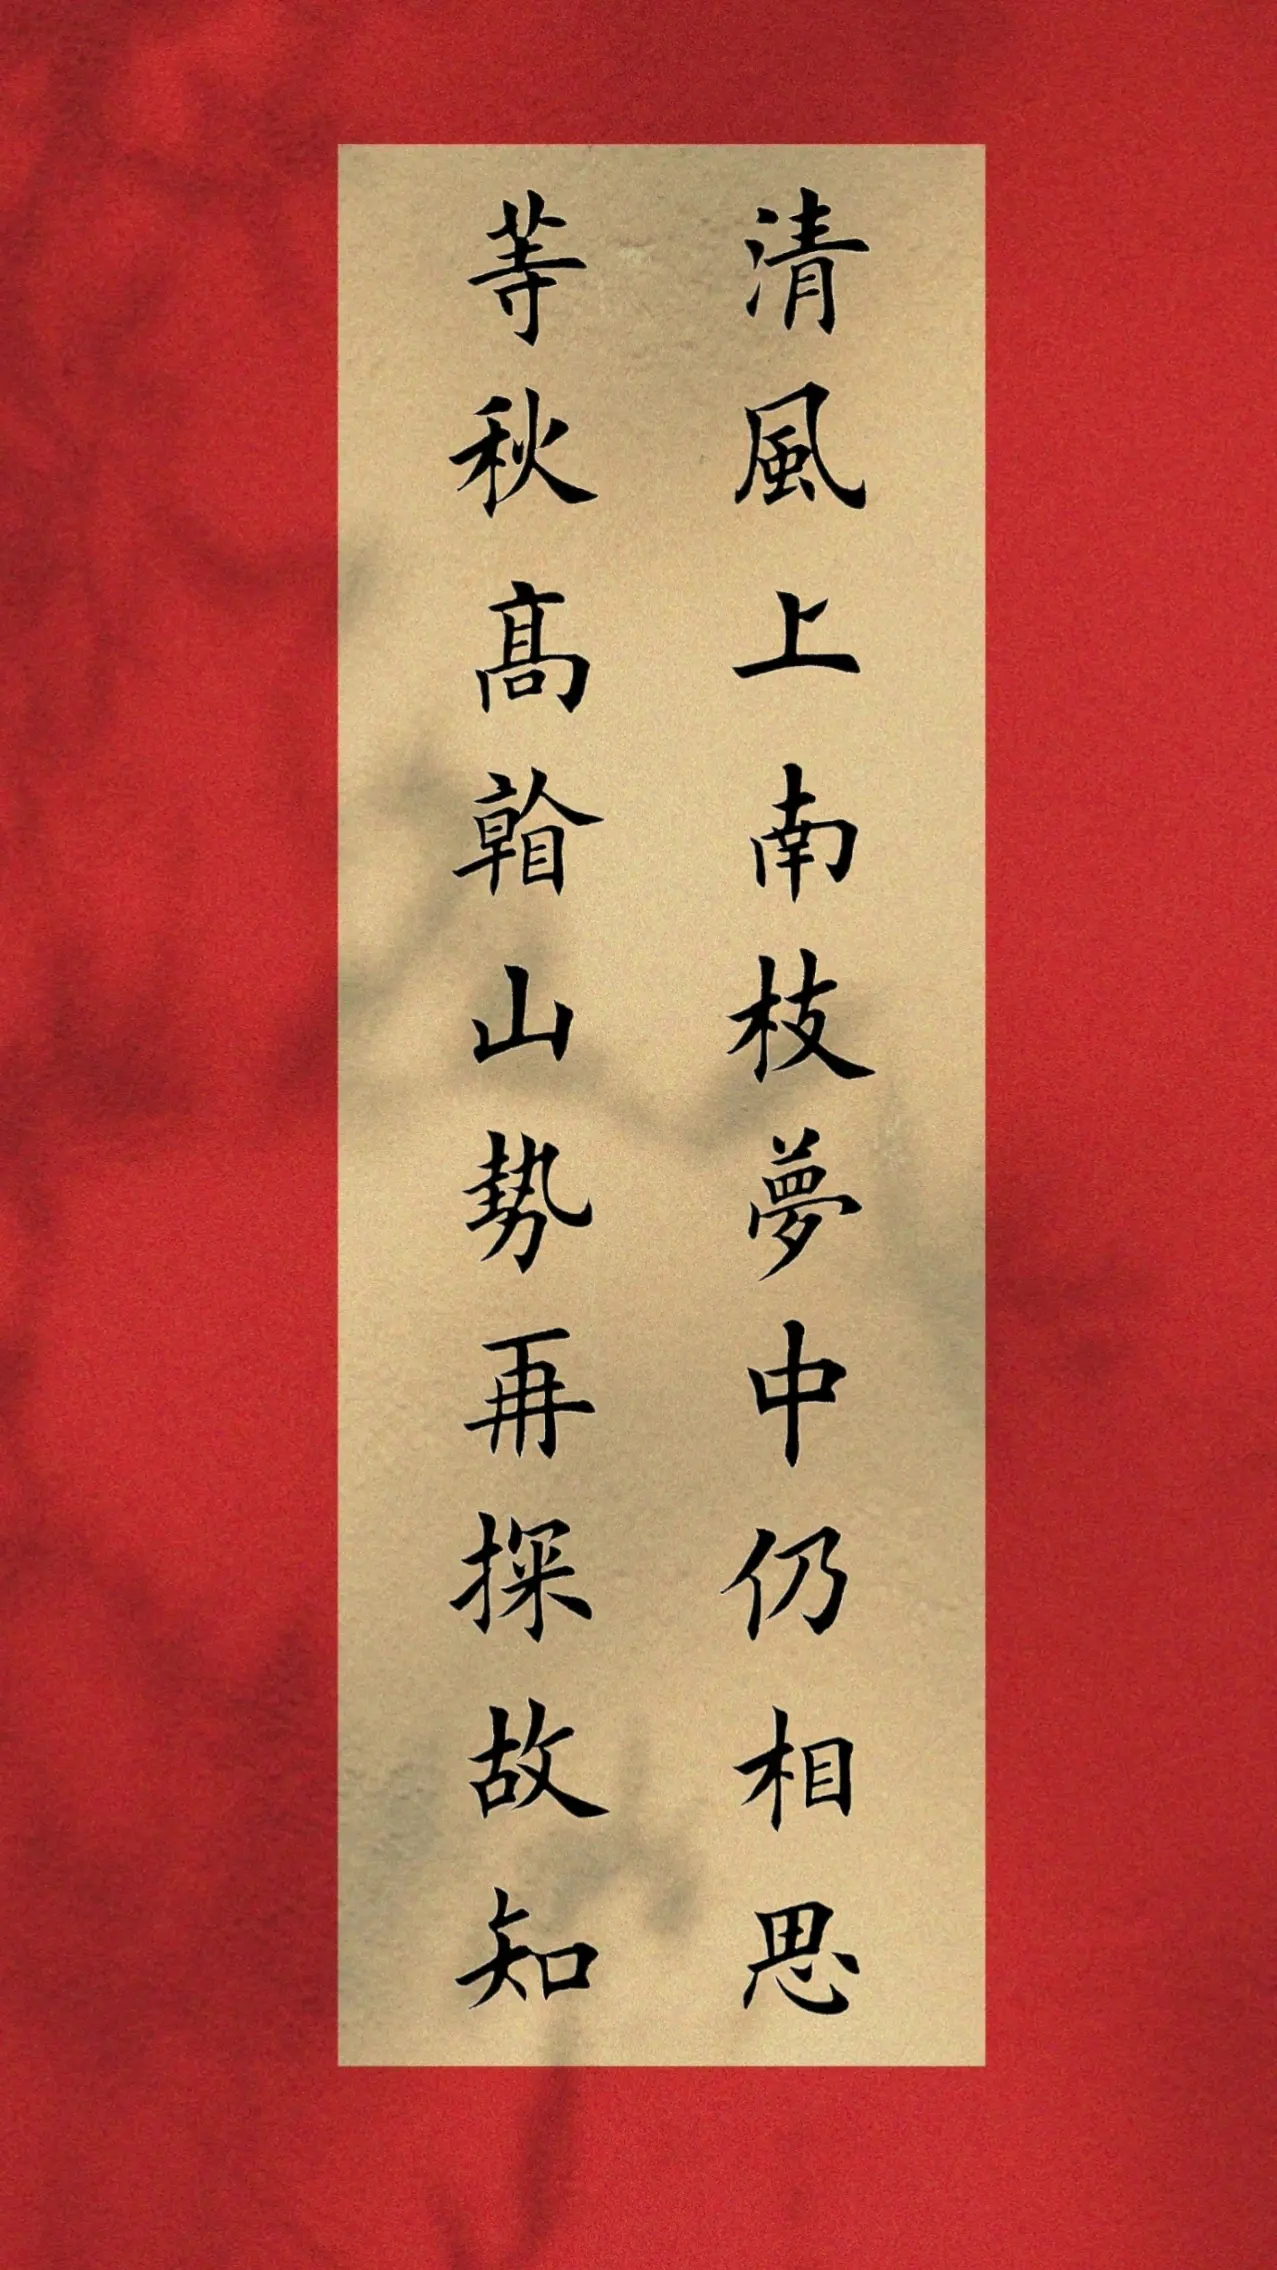 清風上南枝夢中仍相思
等秋高看山勢再探故知